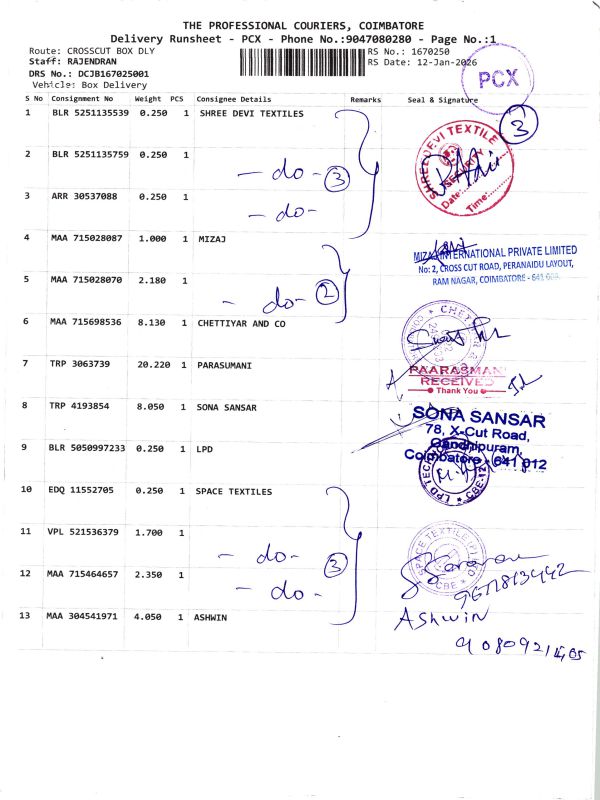 THE PROFESSIONAL COURIERS, COIMBATORE
Delivery Runsheet - PCX - Phone No.:9047080280 - Page No.:1
Route: CROSSCUT BOX DLY
RS No.: 1670250
Staff: RAJENDRAN
RS Date: 12-Jan-2026
DRS No.: DCJB167025001
Vehicle: Box Delivery
PCX
S No Consignment No Weight PCS Consignee Details Remarks Seal & Signature
3
1 BLR 5251135539 0.250 1 SHREE DEVI TEXTILES
SHREE DEVI TEXTILE
SECURITY
Date:
Time:
2 BLR 5251135759 0.250 1
- do - 3
3 ARR 30537088 0.250 1
- do -
4 MAA 715028087 1.000 1 MIZAJ
MIZAJ INTERNATIONAL PRIVATE LIMITED
No: 2, CROSS CUT ROAD, PERANAIDU LAYOUT,
RAM NAGAR, COIMBATORE - 641
5 MAA 715028070 2.180 1
- do - 2
6 MAA 715698536 8.130 1 CHETTIYAR AND CO
7 TRP 3063739 20.220 1 PARASUMANI
PAARASMANI
RECEIVED
Thank You
8 TRP 4193854 8.050 1 SONA SANSAR
SONA SANSAR
78, X-Cut Road,
Gandhipuram,
Coimbatore - 641 012
9 BLR 5050997233 0.250 1 LPD
LPD TECH
CBE-12
10 EDQ 11552705 0.250 1 SPACE TEXTILES
SPACE TEXTILE (P)
CBE
11 VPL 521536379 1.700 1
- do - 3
12 MAA 715464657 2.350 1
- do -
13 MAA 304541971 4.050 1 ASHWIN
Ashwin